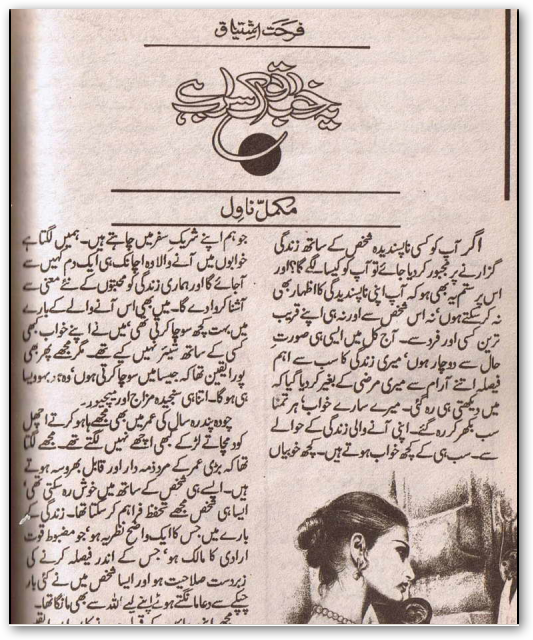 فرحت اشتیاق
مکمل ناول
اگر آپ کو کسی ناپسندیدہ شخص کے ساتھ زندگی
گزارنے پر مجبور کر دیا جائے تو آپ کو کیسا لگے گا؟ اور
اس پر ستم یہ بھی ہو کہ آپ اپنی ناپسندیدگی کا اظہار بھی
نہ کر سکتے ہوں‘ نہ اس شخص سے اور نہ ہی اپنے قریب
ترین کسی اور فرد سے۔ آج کل میں ایسی ہی صورت
حال سے دوچار ہوں‘ میری زندگی کا سب سے اہم
فیصلہ اتنے آرام سے میری مرضی کے بغیر کر دیا گیا کہ
میں دیکھتی ہی رہ گئی۔ میرے سارے خواب‘ ہر تمنا
سب بکھر کر رہ گئے۔ اپنی آنے والی زندگی کے حوالے
سے۔ سب ہی کے کچھ خواب ہوتے ہیں۔ کچھ خوبیاں
جو ہم اپنے شریک سفر میں چاہتے ہیں۔ ہمیں لگتا ہے
خوابوں میں آنے والا وہ اچانک ہی ایک دم کہیں سے
آجائے گا اور ہماری زندگی کو محبتوں کے نئے معنی سے
آشنا کروا دے گا۔ میں بھی اس آنے والے کے بارے
میں بہت کچھ سوچا کرتی تھی‘ میں نے اپنے خواب کبھی
کسی کے ساتھ شیئر نہیں کیے تھے۔ مگر مجھے پھر بھی
پورا یقین تھا کہ جیسا میں سوچا کرتی ہوں‘ وہ بہو ویسا
ہی ہو گا۔ اتنا ہی سنجیدہ مزاج اور میچیور۔
چودہ پندرہ سال کی عمر میں بھی مجھے ہاہو کرتے اچھل
کود مچاتے لڑکے کبھی اچھے نہیں لگتے تھے۔ مجھے لگتا
تھا کہ بڑی عمر کے مرد ذمہ دار اور قابل بھروسہ ہوتے
ہیں۔ ایسے ہی شخص کے ساتھ میں خوش رہ سکتی تھی‘
ایسا ہی شخص مجھے تحفظ فراہم کر سکتا تھا۔ زندگی کے
بارے میں جس کا ایک واضح نظریہ ہو‘ جو مضبوط قوت
ارادی کا مالک ہو‘ جس کے اندر فیصلہ کرنے کی
زبردست صلاحیت ہو اور ایسا شخص میں نے کئی بار
چپکے سے دعا مانگتے ہوئے اپنے لیے اللہ سے بھی مانگا تھا۔